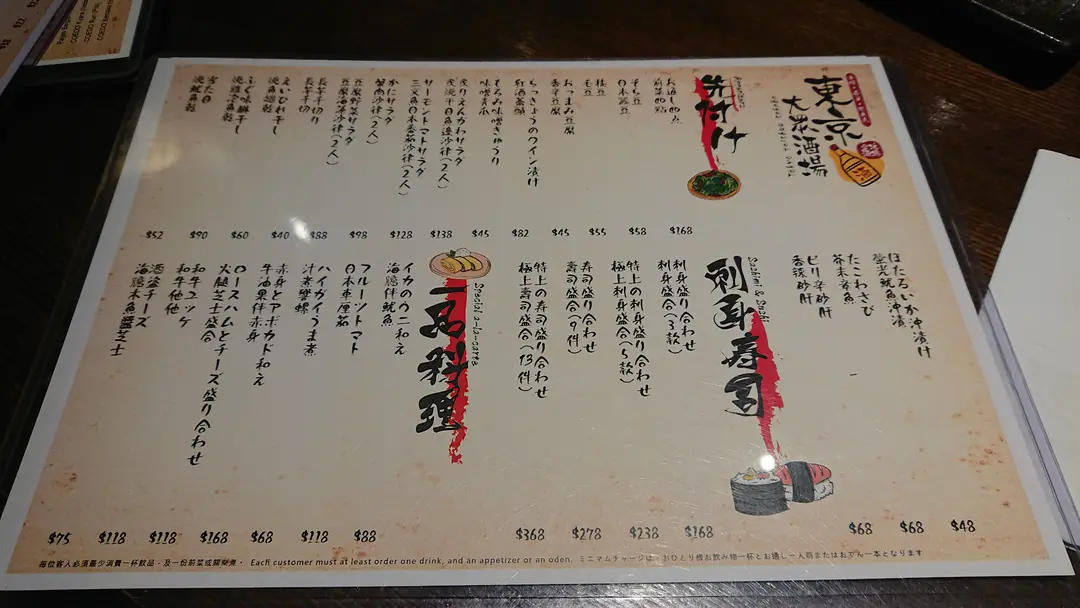 東京
大衆酒場
先付け
お通し四点
前菜四點
$168
そら豆
日本蠶豆
$58
枝豆
毛豆
$55
おつまみ豆腐
香辛豆腐
$45
らっきょうのワイン漬け
紅酒蕎頭
$82
もろみ味噌きゅうり
味噌青瓜
$45
$138
サーモントマトサラダ
三文魚日本蕃茄沙律(2人)
$128
かにサラダ
蟹肉沙律(2人)
$98
豆腐野菜サラダ
豆腐海藻沙律(2人)
$88
長芋千切り
長芋千切
$40
えいひれ干し
$60
ふぐ味醂干し
$90
$52
ほたるいか沖漬け
螢光魷魚沖漬
$48
たこわさび
芥末章魚
$68
ピリ辛砂肝
香辣砂肝
$68
刺身寿司
Sashimi & Sushi
刺身盛り合わせ
刺身盛合(3款)
$168
特上の刺身盛り合わせ
極上刺身盛合(5款)
$238
寿司盛り合わせ
壽司盛合(9件)
$278
特上の寿司盛り合わせ
極上壽司盛合(13件)
$368
一品料理
Special a-la-carte
イカのウニ和え
海膽伴魷魚
$88
フルーツトマト
日本車厘茄
$118
ハイガイうま煮
汁煮響螺
$68
赤身とアボカド和え
牛油果伴赤身
$168
ロースハムとチーズ盛り合わせ
火腿芝士盛合
$118
和牛ユッケ
和牛他他
$118
酒盗チーズ
海膽木魚醬芝士
$75
每位客人必須最少消費一杯飲品，及一份前菜或關東煮。 Each customer must at least order one drink, and an appetizer or an oden. ミニマムチャージは、おひとり様お飲み物一杯とお通し一人前またはおでん一本となります